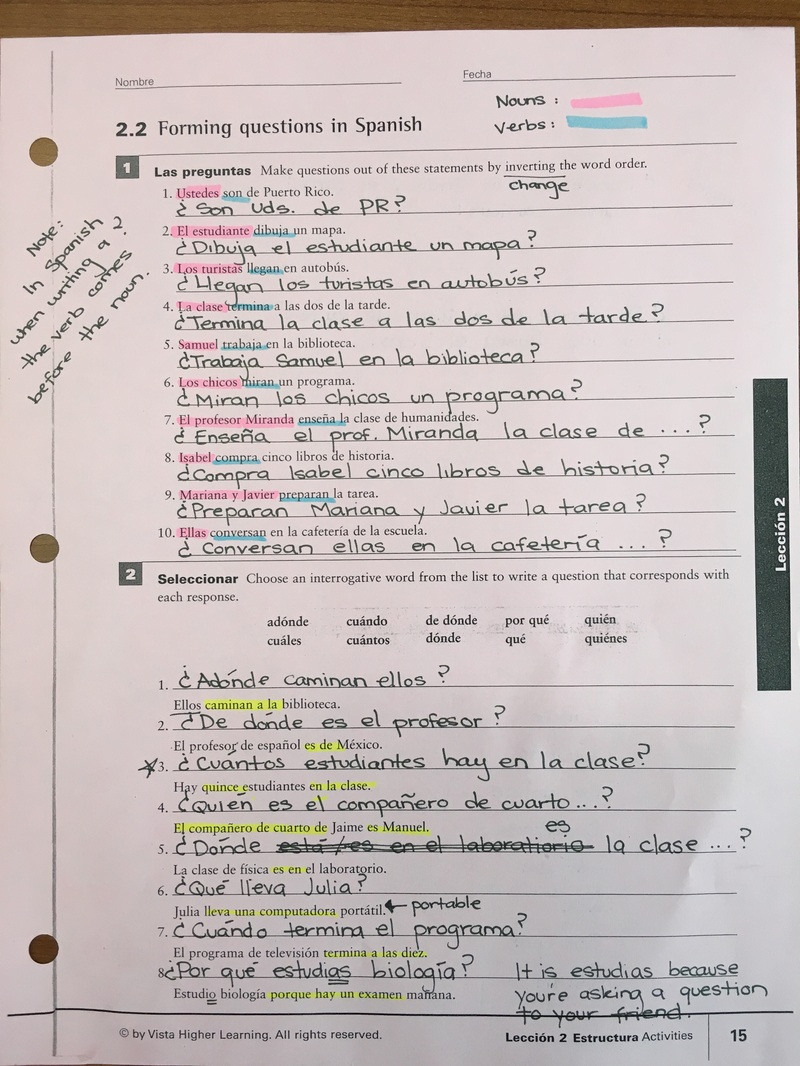 Nombre
Fecha
Nouns :
Verbs :
2.2 Forming questions in Spanish
1 Las preguntas Make questions out of these statements by inverting the word order.
change
1. Ustedes son de Puerto Rico.
¿Son Uds. de PR?
2. El estudiante dibuja un mapa.
¿Dibuja el estudiante un mapa?
3. Los turistas llegan en autobús.
¿Llegan los turistas en autobús?
4. La clase termina a las dos de la tarde.
¿Termina la clase a las dos de la tarde?
5. Samuel trabaja en la biblioteca.
¿Trabaja Samuel en la biblioteca?
6. Los chicos miran un programa.
¿Miran los chicos un programa?
7. El profesor Miranda enseña la clase de humanidades.
¿Enseña el prof. Miranda la clase de ...?
8. Isabel compra cinco libros de historia.
¿Compra Isabel cinco libros de historia?
9. Mariana y Javier preparan la tarea.
¿Preparan Mariana y Javier la tarea?
10. Ellas conversan en la cafetería de la escuela.
¿Conversan ellas en la cafetería ...?
Note:
In Spanish
when writing a ?
the verb comes
before the noun.
Lección 2
2 Seleccionar Choose an interrogative word from the list to write a question that corresponds with
each response.
adónde cuándo de dónde por qué quién
cuáles cuántos dónde qué quiénes
1. ¿Adónde caminan ellos?
Ellos caminan a la biblioteca.
2. ¿De dónde es el profesor?
El profesor de español es de México.
3. ¿Cuántos estudiantes hay en la clase?
Hay quince estudiantes en la clase.
4. ¿Quién es el compañero de cuarto...?
El compañero de cuarto de Jaime es Manuel.
es
5. ¿Dónde está/es en el laboratiorio la clase ...?
La clase de física es en el laboratorio.
6. ¿Qué lleva Julia?
Julia lleva una computadora portátil. ← portable
7. ¿Cuándo termina el programa?
El programa de televisión termina a las diez.
8. ¿Por qué estudias biología? It is estudias because
Estudio biología porque hay un examen mañana. you're asking a question
to your friend.
© by Vista Higher Learning. All rights reserved.
Lección 2 Estructura Activities 15